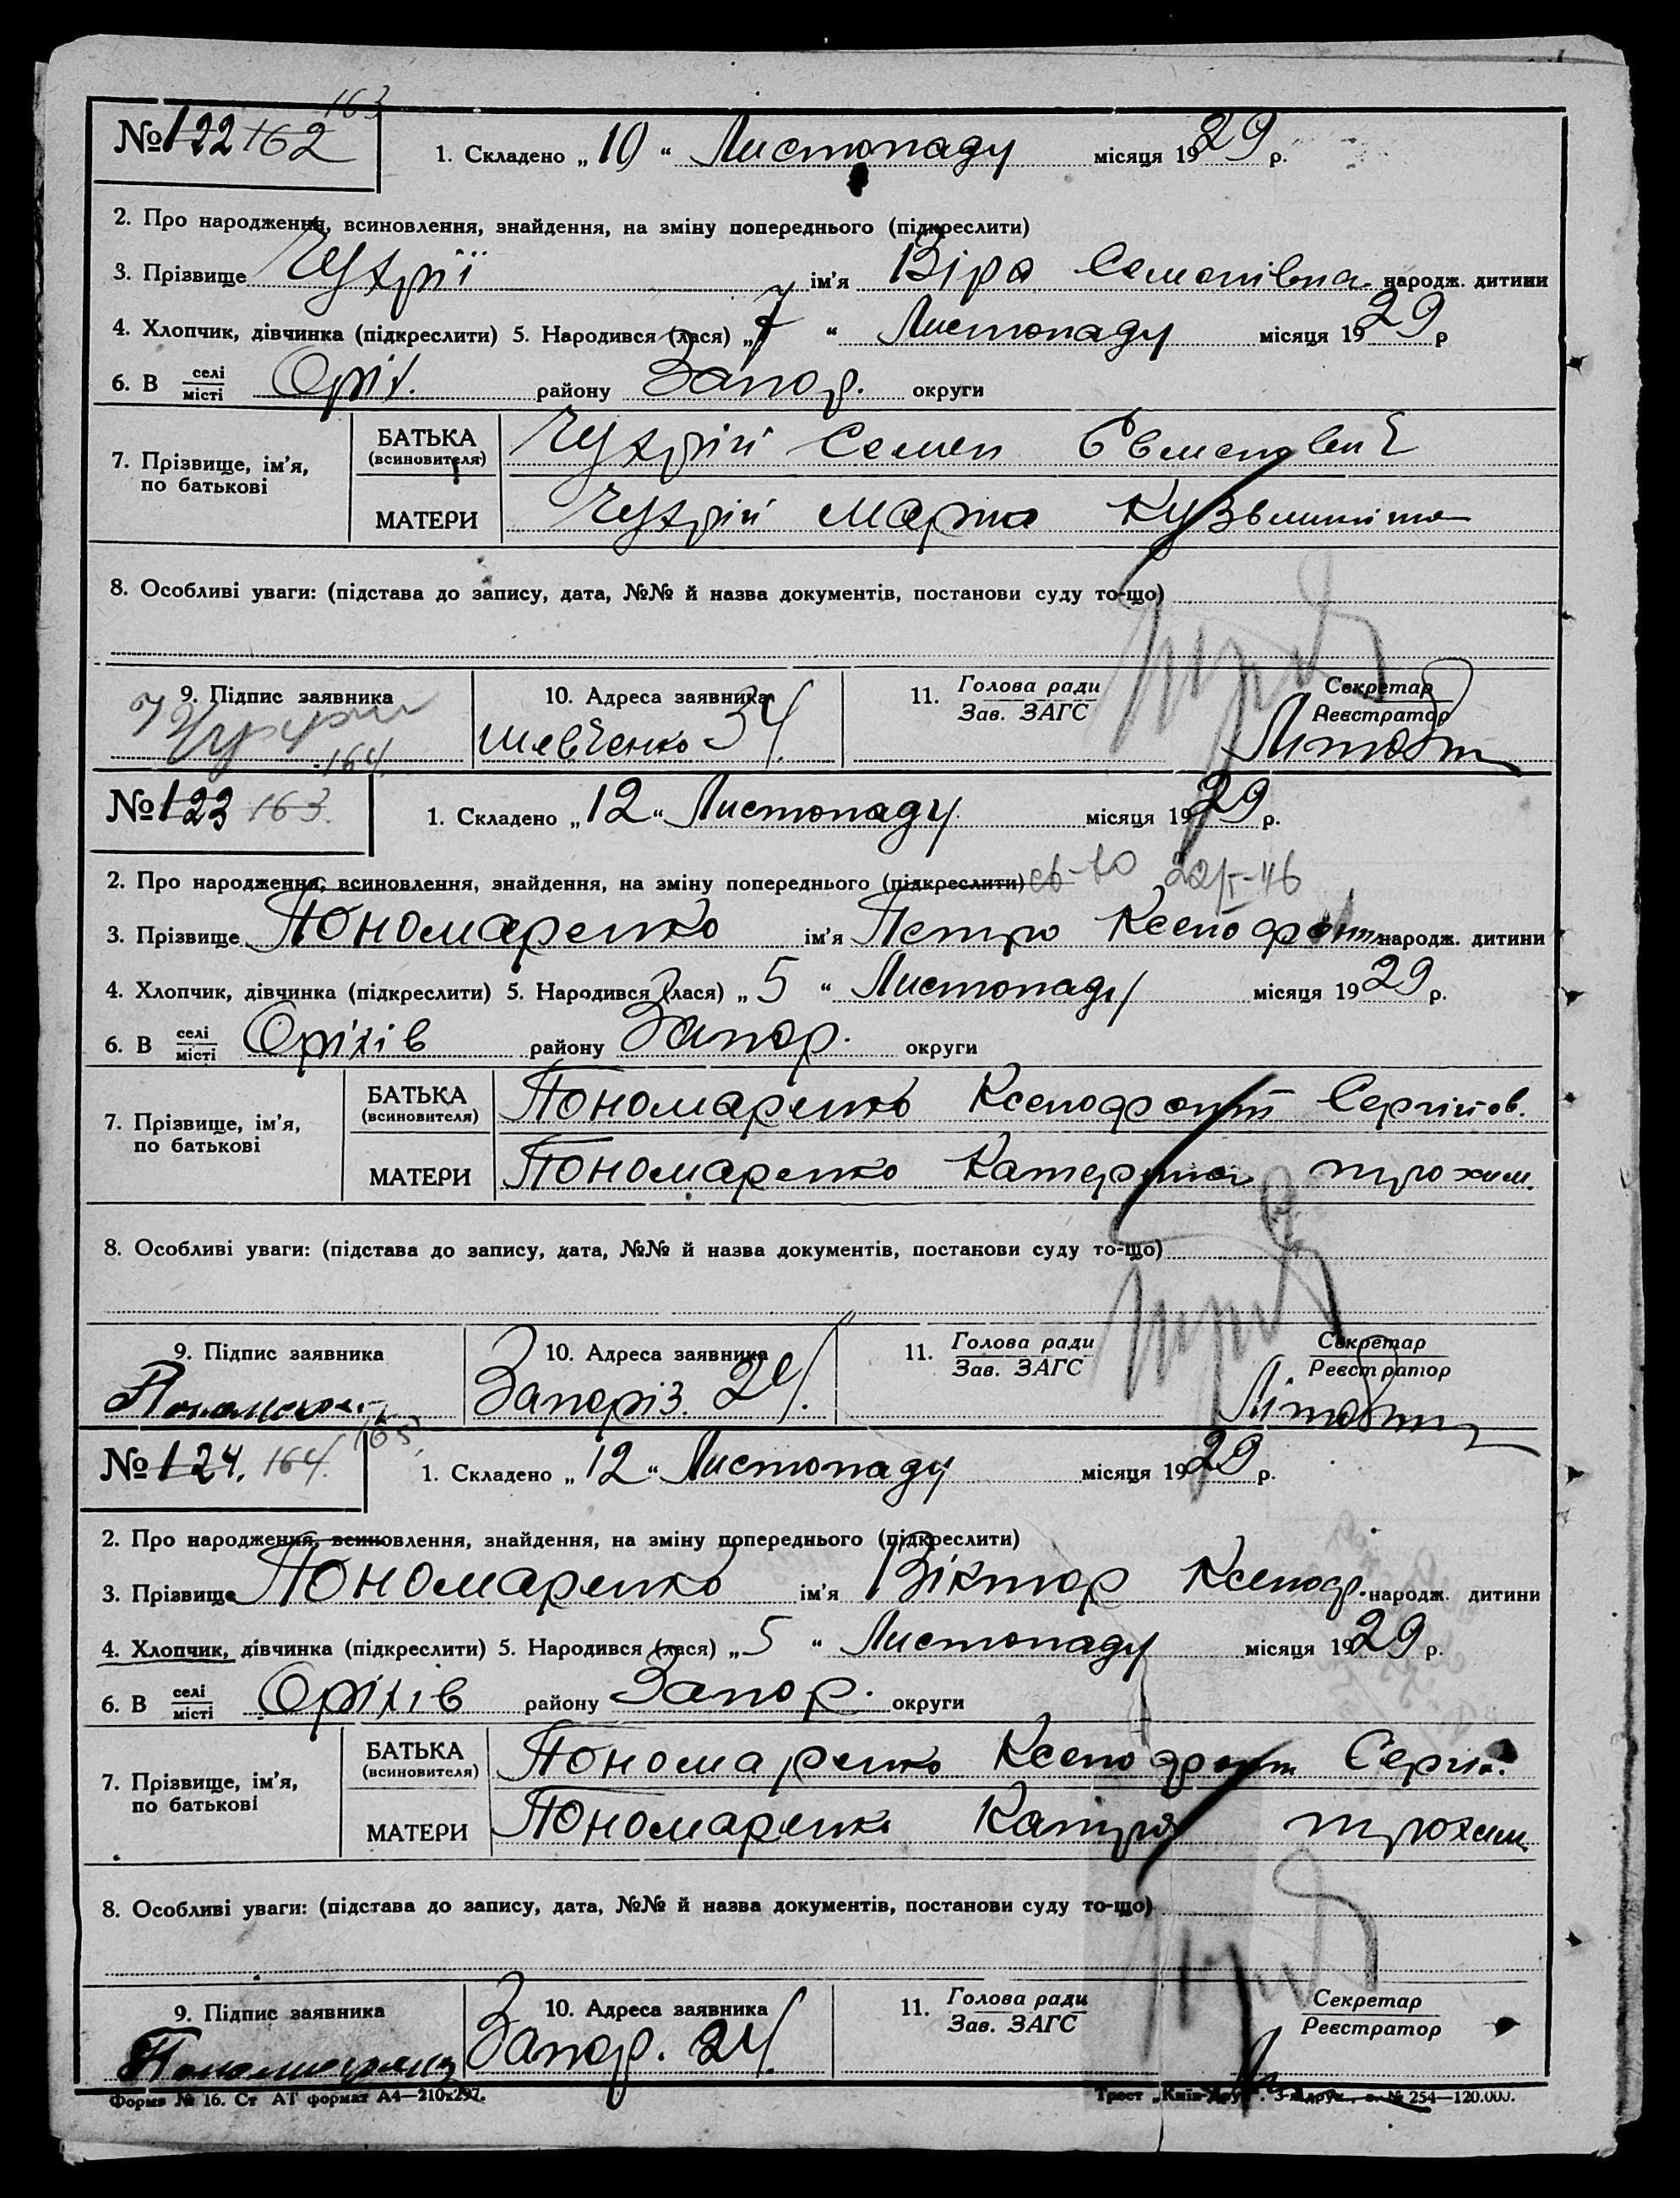 163
№ 122 162
1. Складено „10“ Листопаду місяця 1929 р.
2. Про народження, всиновлення, знайдення, на зміну попереднього (підкреслити)
3. Прізвище Чухрії ім'я Віра Семенівна народж. дитини
4. Хлопчик, дівчинка (підкреслити) 5. Народився (лася) „7“ Листопаду місяця 1929 р
6. В селі місті Оріх. району Запор. округи
7. Прізвище, ім'я, по батькові
БАТЬКА (всиновителя) Чухрій Семен
МАТЕРИ Чухрій Марта
8. Особливі уваги: (підстава до запису, дата, №№ й назва документів, постанови суду то-що)
9. Підпис заявника
10. Адреса заявника Шевченко 34
11. Голова ради Зав. ЗАГС
Секретар Реєстратор
164
№ 123 163.
1. Складено „12“ Листопаду місяця 1929 р.
2. Про народження, всиновлення, знайдення, на зміну попереднього (підкреслити) св-во 22/I-46
3. Прізвище Пономаренко ім'я Петро Ксенофонт народж. дитини
4. Хлопчик, дівчинка (підкреслити) 5. Народився (лася) „5“ Листопаду місяця 1929 р.
6. В селі місті Оріхів району Запор. округи
7. Прізвище, ім'я, по батькові
БАТЬКА (всиновителя) Пономаренко Ксенофонт Сергійов.
МАТЕРИ Пономаренко Катерина Трохим.
8. Особливі уваги: (підстава до запису, дата, №№ й назва документів, постанови суду то-що)
9. Підпис заявника
10. Адреса заявника Запоріз. 24.
11. Голова ради Зав. ЗАГС
Секретар Реєстратор
165.
№ 124. 164.
1. Складено „12“ Листопаду місяця 1929 р.
2. Про народження, всиновлення, знайдення, на зміну попереднього (підкреслити)
3. Прізвище Пономаренко ім'я Віктор Ксеноф. народж. дитини
4. Хлопчик, дівчинка (підкреслити) 5. Народився (лася) „5“ Листопаду місяця 1929 р.
6. В селі місті Оріхів району Запор. округи
7. Прізвище, ім'я, по батькові
БАТЬКА (всиновителя) Пономаренко Ксенофонт Сергій.
МАТЕРИ Пономаренко Катря Трохим
8. Особливі уваги: (підстава до запису, дата, №№ й назва документів, постанови суду то-що)
9. Підпис заявника
10. Адреса заявника Запор. 24.
11. Голова ради Зав. ЗАГС
Секретар Реєстратор
Форма № 16. Ст АТ формат А4—210x297.
Трест „Київ-Друк“. 3-я друк., з. № 254—120.000.